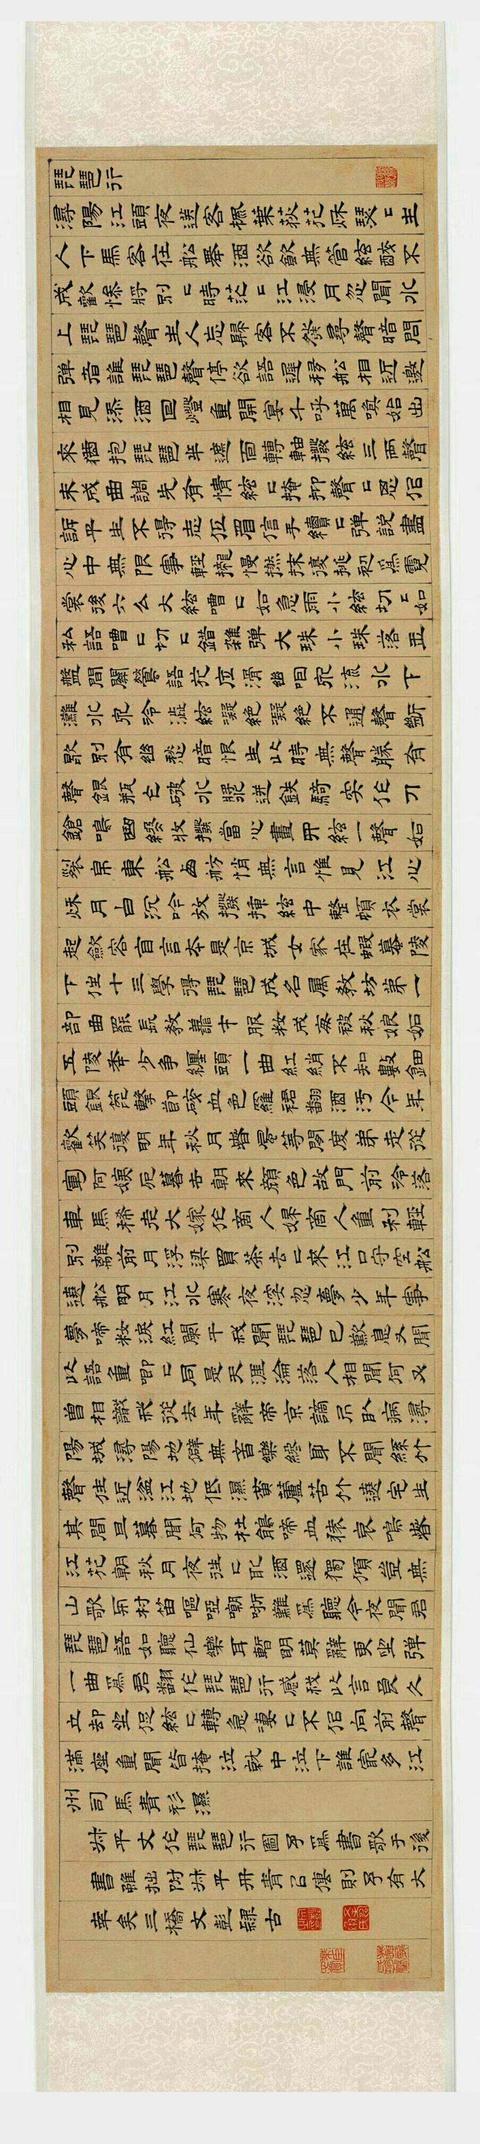 琵琶行
潯陽江頭夜送客楓葉荻花秋瑟〻主
人下馬客在船舉酒欲飲無管絃醉不
成歡慘將別〻時茫〻江浸月忽聞水
上琵琶聲主人忘歸客不發尋聲暗問
彈者誰琵琶聲停欲語遲移船相近邀
相見添酒回燈重開宴千呼萬喚始出
來猶抱琵琶半遮面轉軸撥絃三兩聲
未成曲調先有情絃〻掩抑聲〻思似
訴平生不得志低眉信手續〻彈說盡
心中無限事輕攏慢撚抹復挑初為霓
裳後六么大絃嘈〻如急雨小絃切〻如
私語嘈〻切〻錯雜彈大珠小珠落玉
盤間關鶯語花底滑幽咽泉流水下
灘水泉冷澁絃凝絕凝絕不通聲漸
歇別有幽愁暗恨生此時無聲勝有
聲銀瓶乍破水漿迸鉄騎突作刀
鎗鳴曲終收撥當心畫四絃一聲如
裂帛東船西舫悄無言惟見江心
秋月白沉吟放撥插絃中整頓衣裳
起斂容自言本是京城女家在蝦蟇陵
下住十三學得琵琶成名屬教坊第一
部曲罷長教善才服粧成每被秋娘妬
五陵年少爭纏頭一曲紅綃不知數鈿
頭銀篦擊節碎血色羅裙翻酒汚今年
歡笑復明年秋月春風等閑度弟走從
軍阿姨死暮去朝來顏色故門前冷落
車馬稀老大嫁作商人婦商人重利輕
別離前月浮梁買茶去〻來江口守空船
遶船明月江水寒夜深忽夢少年事
夢啼粧淚紅闌干我聞琵琶已歎息又聞
此語重唧〻同是天涯淪落人相聞何必
曾相識我從去年辭帝京謫居臥病潯
陽城潯陽地僻無音樂終身不聞絲竹
聲住近湓江地低濕黃蘆苦竹遶宅生
其間旦暮聞何物杜鵑啼血猿哀鳴春
江花朝秋月夜往〻取酒還獨傾豈無
山歌與村笛嘔啞嘲哳難為聽今夜聞君
琵琶語如聽仙樂耳暫明莫辭更坐彈
一曲為君翻作琵琶行感我此言良久
立却坐促絃〻轉急淒〻不似向前聲
滿座重聞皆掩泣就中泣下誰最多江
州司馬青衫濕
叔平丈作琵琶行圖予為書歌于後
書雖拙附叔平丹青以傳則予有大
幸矣三橋文彭隸古